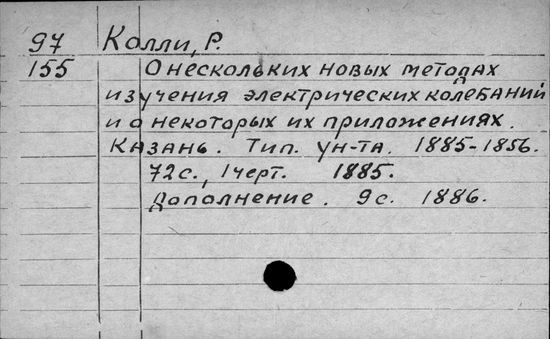 97 Колли, Р.
155 О нескольких новых методах
изучения электрических колебаний
и о некоторых их приложениях.
Казань. Тип. ун-та. 1885-1856.
72с., 1черт. 1885.
Дополнение. 9с. 1886.